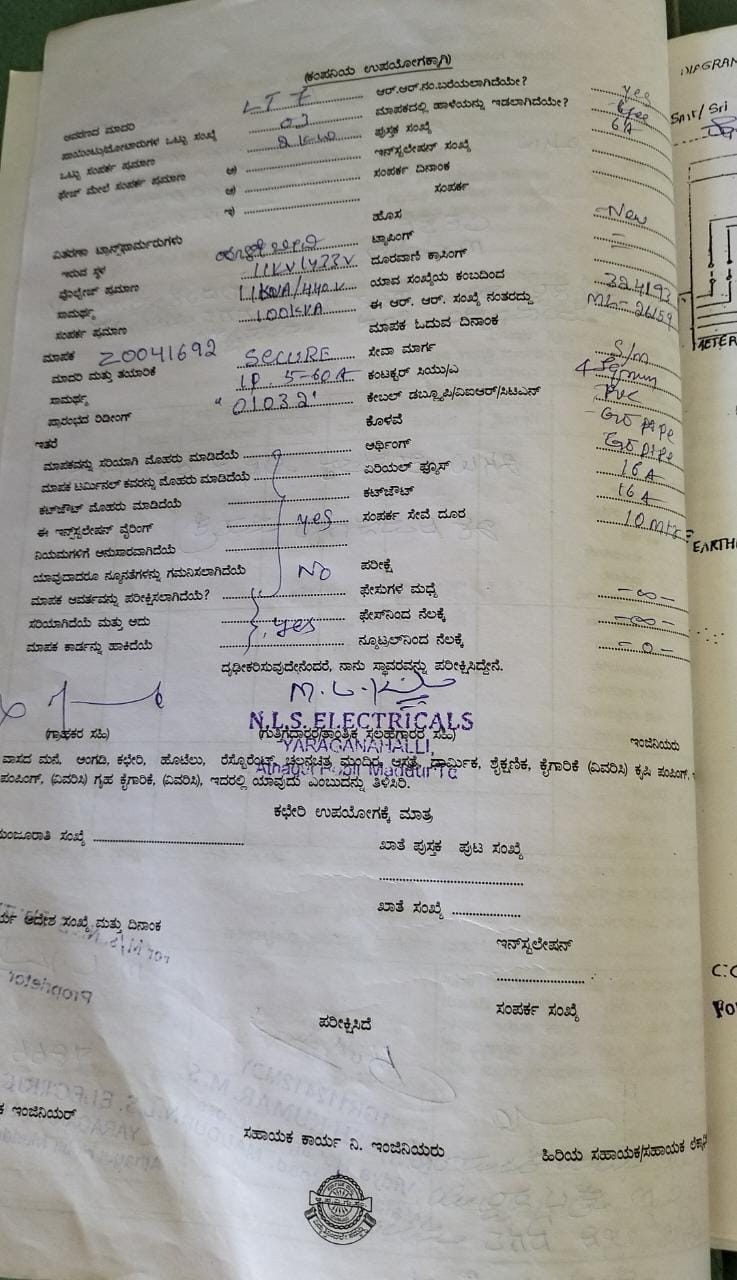 (ಕಂಪನಿಯ ಉಪಯೋಗಕ್ಕಾಗಿ)
ಆವರಣದ ಮಾದರಿ LT 7 ಆರ್.ಆರ್.ನಂ.ಬರೆಯಲಾಗಿದೆಯೇ? yes
ಪಾಯಿಂಟು/ಮೋಟಾರುಗಳ ಒಟ್ಟು ಸಂಖ್ಯೆ 03 ಮಾಪಕದಲ್ಲಿ ಹಾಳೆಯನ್ನು ಇಡಲಾಗಿದೆಯೇ? yes
ಒಟ್ಟು ಸಂಪರ್ಕ ಪ್ರಮಾಣ ಪುಸ್ತಕ ಸಂಖ್ಯೆ 6A
ಫೇಜ್ ಮೇಲೆ ಸಂಪರ್ಕ ಪ್ರಮಾಣ ಅ) ಇನ್‌ಸ್ಟಲೇಷನ್ ಸಂಖ್ಯೆ
ಆ) ಸಂಪರ್ಕ ದಿನಾಂಕ
ಇ) ಸಂಪರ್ಕ
ವಿತರಣಾ ಟ್ರಾನ್ಸ್‌ಫಾರ್ಮರುಗಳು ಹೊಸ New
ಇರುವ ಸ್ಥಳ ಟ್ಯಾಪಿಂಗ್
ವೋಲ್ಟೇಜ್ ಪ್ರಮಾಣ 11KV/433V ದೂರವಾಣಿ ಕ್ರಾಸಿಂಗ್
ಸಾಮರ್ಥ್ಯ 11KVA/440V ಯಾವ ಸಂಖ್ಯೆಯ ಕಂಬದಿಂದ 324193
ಸಂಪರ್ಕ ಪ್ರಮಾಣ 100KVA ಈ ಆರ್. ಆರ್. ಸಂಖ್ಯೆ ನಂತರದ್ದು ML-26159
ಮಾಪಕ Z0041692 ಮಾಪಕ ಓದುವ ದಿನಾಂಕ
ಮಾದರಿ ಮತ್ತು ತಯಾರಿಕೆ SECURE ಸೇವಾ ಮಾರ್ಗ S/m
ಸಾಮರ್ಥ್ಯ 1P. 5-60A ಕಂಟಕ್ಟರ್ ಸಿಯು/ಎ 4 Sqmm
ಪ್ರಾರಂಭದ ರಿಡಿಂಗ್ "01032" ಕೇಬಲ್ ಡಬ್ಲ್ಯೂಪಿ/ಎಐಆರ್/ಸಿಟಿಎಸ್ PVC
ಇತರೆ ಕೊಳವೆ GI PIPE
ಮಾಪಕವನ್ನು ಸರಿಯಾಗಿ ಮೊಹರು ಮಾಡಿದೆಯೆ ಅರ್ಥಿಂಗ್ GI PIPE
ಮಾಪಕ ಟರ್ಮಿನಲ್ ಕವರನ್ನು ಮೊಹರು ಮಾಡಿದೆಯೆ ಏರಿಯಲ್ ಫ್ಯೂಸ್ 16A
ಕಟ್‌ಔಟ್ ಮೊಹರು ಮಾಡಿದೆಯೆ ಕಟ್‌ಔಟ್ 16A
ಈ ಇನ್‌ಸ್ಟಲೇಷನ್ ವೈರಿಂಗ್ yes ಸಂಪರ್ಕ ಸೇವೆ ದೂರ 10 mtr
ನಿಯಮಗಳಿಗೆ ಅನುಸಾರವಾಗಿದೆಯೆ
ಯಾವುದಾದರೂ ನ್ಯೂನತೆಗಳನ್ನು ಗಮನಿಸಲಾಗಿದೆಯೆ No ಪರೀಕ್ಷೆ
ಮಾಪಕ ಆವರ್ತವನ್ನು ಪರೀಕ್ಷಿಸಲಾಗಿದೆಯೆ? ಫೇಸುಗಳ ಮಧ್ಯೆ -∞-
ಸರಿಯಾಗಿದೆಯೆ ಮತ್ತು ಅದು yes ಫೇಸ್‌ನಿಂದ ನೆಲಕ್ಕೆ -∞-
ಮಾಪಕ ಕಾರ್ಡನ್ನು ಹಾಕಿದೆಯೆ ನ್ಯೂಟ್ರಲ್‌ನಿಂದ ನೆಲಕ್ಕೆ -0-
ದೃಢೀಕರಿಸುವುದೇನೆಂದರೆ, ನಾನು ಸ್ಥಾವರವನ್ನು ಪರೀಕ್ಷಿಸಿದ್ದೇನೆ.
N.L.S. ELECTRICALS
(ಗ್ರಾಹಕರ ಸಹಿ) (ಗುತ್ತಿಗೆದಾರರ/ತಾಂತ್ರಿಕ ಸಲಹೆಗಾರರ ಸಹಿ) ಇಂಜಿನಿಯರು
YARAGANAHALLI,
Athagur Hobli Maddur Tq
ವಾಸದ ಮನೆ, ಅಂಗಡಿ, ಕಛೇರಿ, ಹೊಟೆಲು, ರೆಸ್ಟೋರೆಂಟ್, ಚಲನಚಿತ್ರ ಮಂದಿರ, ಆಸ್ಪತ್ರೆ, ಧಾರ್ಮಿಕ, ಶೈಕ್ಷಣಿಕ, ಕೈಗಾರಿಕೆ (ವಿವರಿಸಿ) ಕೃಷಿ ಪಂಪಿಂಗ್,
ಪಂಪಿಂಗ್, (ವಿವರಿಸಿ) ಗೃಹ ಕೈಗಾರಿಕೆ, (ವಿವರಿಸಿ), ಇದರಲ್ಲಿ ಯಾವುದು ಎಂಬುದನ್ನು ತಿಳಿಸಿರಿ.
ಕಛೇರಿ ಉಪಯೋಗಕ್ಕೆ ಮಾತ್ರ
ಮಂಜೂರಾತಿ ಸಂಖ್ಯೆ ಖಾತೆ ಪುಸ್ತಕ ಪುಟ ಸಂಖ್ಯೆ
ಖಾತೆ ಸಂಖ್ಯೆ
ಆದೇಶ ಸಂಖ್ಯೆ ಮತ್ತು ದಿನಾಂಕ
ಇನ್‌ಸ್ಟಲೇಷನ್
ಸಂಪರ್ಕ ಸಂಖ್ಯೆ
ಪರೀಕ್ಷಿಸಿದೆ
ಇಂಜಿನಿಯರ್
ಸಹಾಯಕ ಕಾರ್ಯ ನಿ. ಇಂಜಿನಿಯರು
ಹಿರಿಯ ಸಹಾಯಕ/ಸಹಾಯಕ
DIAGRAM
Smt/ Sri
METER
EARTH